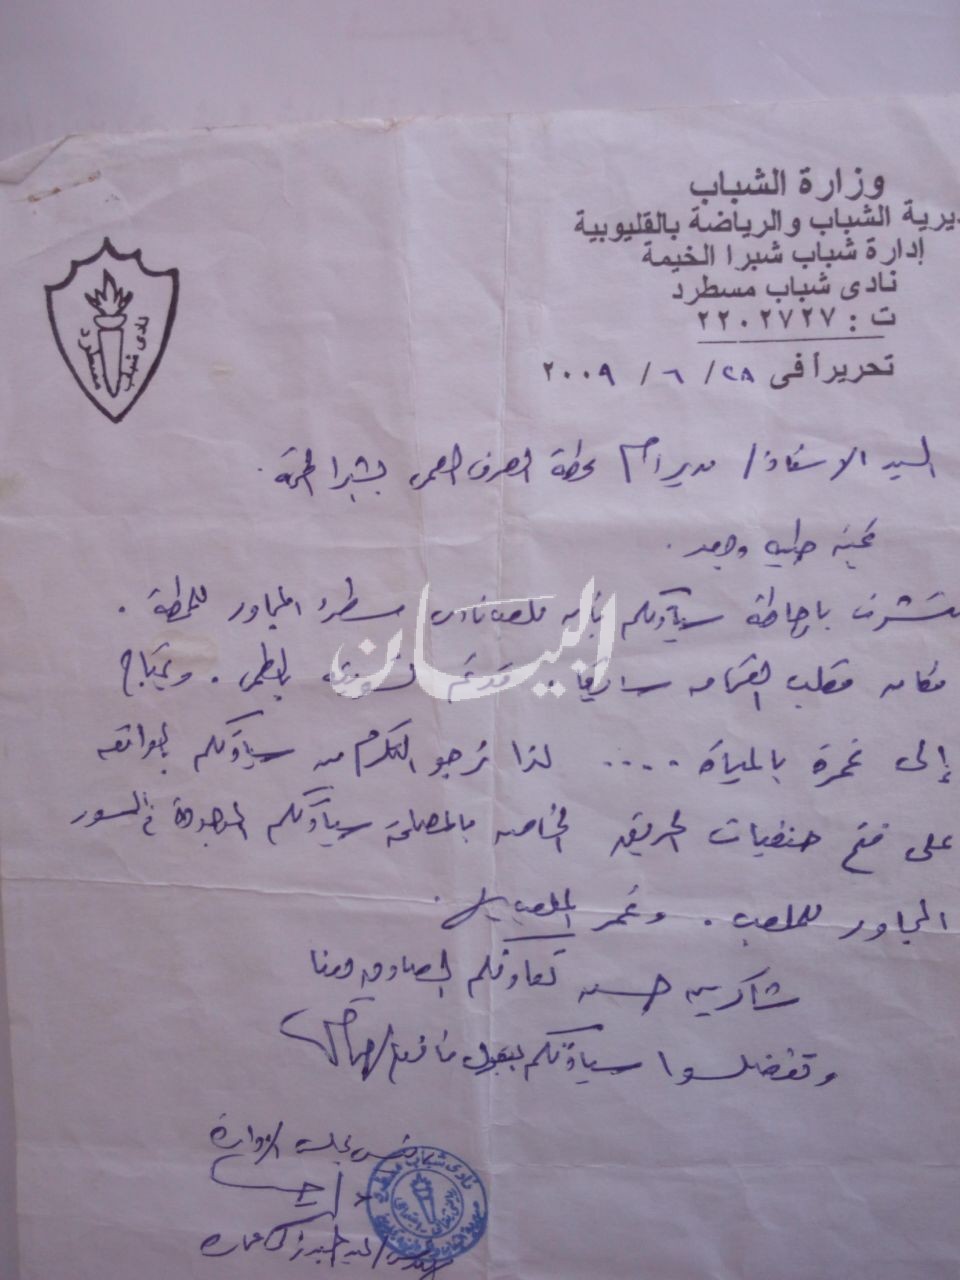 وزارة الشباب
ديرية الشباب والرياضة بالقليوبية
إدارة شباب شبرا الخيمة
نادى شباب مسطرد
ت : ٢٢٠٢٧٢٧
تحريراً فى ٢٨ / ٦ / ٢٠٠٩
نادى شباب
السيد الاستاذ / مدير عام محطة الصرف الصحى بشبرا الخيمة .
تحية طيبه وبعد .
نتشرف باحاطة سيادتكم بأن ملعب نادى مسطرد المجاور للمحطة .
مكانه مقلب القمامه سابقا . وتم بالطمى . ويحتاج
إلى غمرة بالمياة .... لذا نرجو التكرم من سيادتكم بالموافقه
على فتح حنفيات الحريق الخاصه بالمصلحة سيادتكم الموجودة فى السور
المجاور للملعب . وغمر الملعب .
شاكرين حسن تعاونكم الصادق معنا
وتفضلوا سيادتكم بقبول فائق الاحترام
رئيس مجلس الادارة
نادى شباب مسطرد
البيان